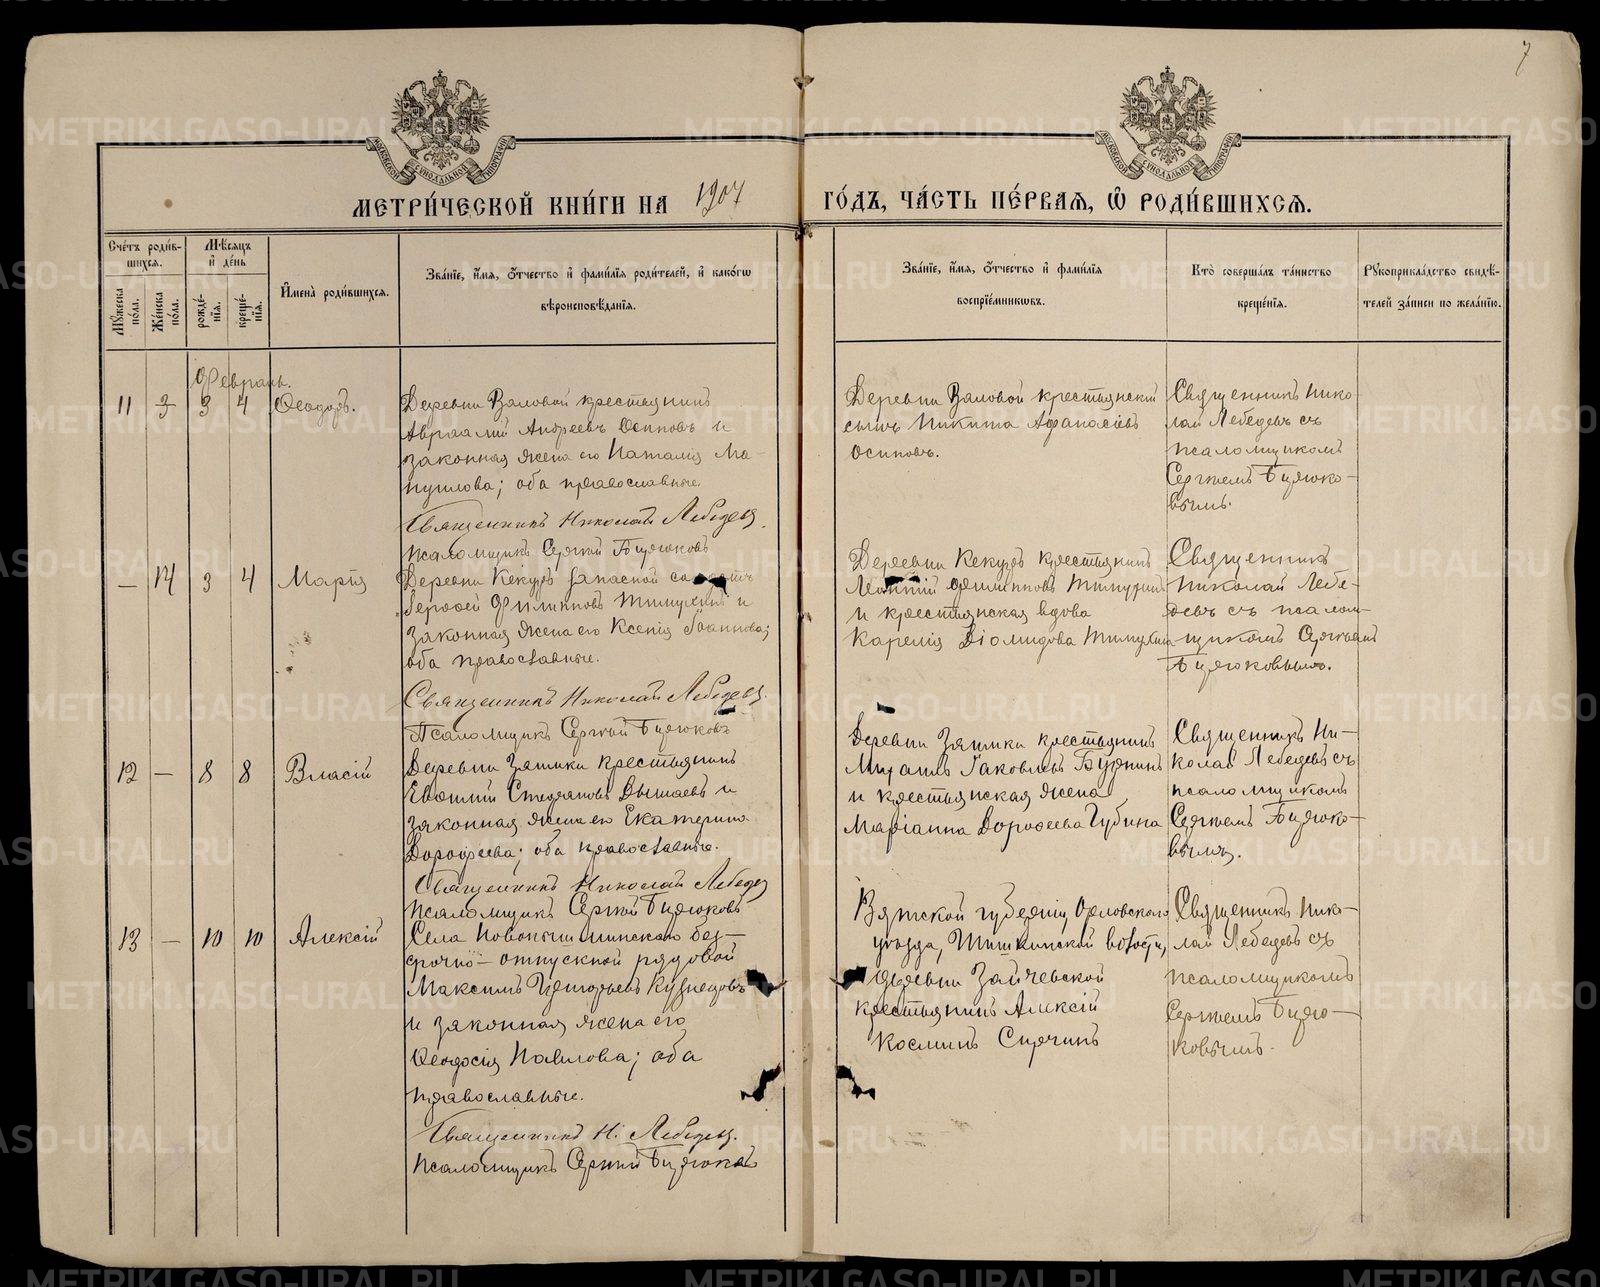 7
МЕТРИ́ЧЕСКОЙ КНИ́ГИ НА 1907 ГО́ДЪ, ЧА́СТЬ ПЕ́РВАЯ, Ѡ РОДИ́ВШИХСЯ.
Сче́тъ роди́вшихся.
Му́жеска по́ла.
Же́нска по́ла.
Мѣ́сяцъ и де́нь
рожде́нїя.
креще́нїя.
Имена̀ роди́вшихся.
Зва́нїе, и́мя, о́тчество и фами́лїя роди́телей, и како́гѡ
вѣроисповѣ́данїя.
Зва́нїе, и́мя, о́тчество и фами́лїя
воспрїе́мникѡвъ.
Кто̀ соверша́лъ та́инство
креще́нїя.
Рукоприкла́дство свидѣ́-
телей за́писи по жела́нїю.
Февраль.
11 – 3 4 Ѳеодоръ.
Деревни Валовой крестьянинъ
Авраамій Андреевъ Осиповъ и
законная жена его Наталія Ма-
нуилова; оба православные.
Священникъ Николай Лебедевъ
Псаломщикъ Сергій Бирюковъ
Деревни Валовой крестьянскій
сынъ Никита Афанасіевъ
Осиповъ.
Священникъ Нико-
лай Лебедевъ съ
псаломщикомъ
Сергіемъ Бирюко-
вымъ.
– 14 3 4 Марія
Деревни Кекуръ запасной солдатъ
Филипповъ Тимухинъ и
законная жена его Ксенія Іоаннова;
оба православные.
Священникъ Николай Лебедевъ
Псаломщикъ Сергій Бирюковъ
Деревни Кекуръ крестьянинъ
Филипповъ Тимухинъ
и крестьянская вдова
Карелія Діомидова Тимухина
Священникъ
Николай Лебе-
девъ съ псалом-
щикомъ Сергіемъ
Бирюковымъ.
12 – 8 8 Власій
Деревни Заимки крестьянинъ
Евѳимій Стефановъ и
законная жена его Екатерина
Дороѳеева; оба православные.
Священникъ Николай Лебедевъ
Псаломщикъ Сергій Бирюковъ
Деревни Заимки крестьянинъ
Михаилъ Іаковлевъ
и крестьянская жена
Маріанна Дороѳеева Губина
Священникъ Ни-
колай Лебедевъ съ
псаломщикомъ
Сергіемъ Бирюко-
вымъ.
13 – 10 10 Алексій
Села Новопышминскаго без-
срочно-отпускной рядовой
Максимъ Григорьевъ Кузнецовъ
и законная жена его
Ѳеодосія Павлова; оба
православные.
Священникъ Н. Лебедевъ.
Псаломщикъ Сергій Бирюковъ
Вятской губерніи, Орловскаго
уѣзда, Шишкинской волости,
деревни Зайчевской
крестьянинъ Алексій
Косминъ Сырчинъ
Священникъ Нико-
лай Лебедевъ съ
псаломщикомъ
Сергіемъ Бирю-
ковымъ.
METRIKI.GASO-URAL.RU